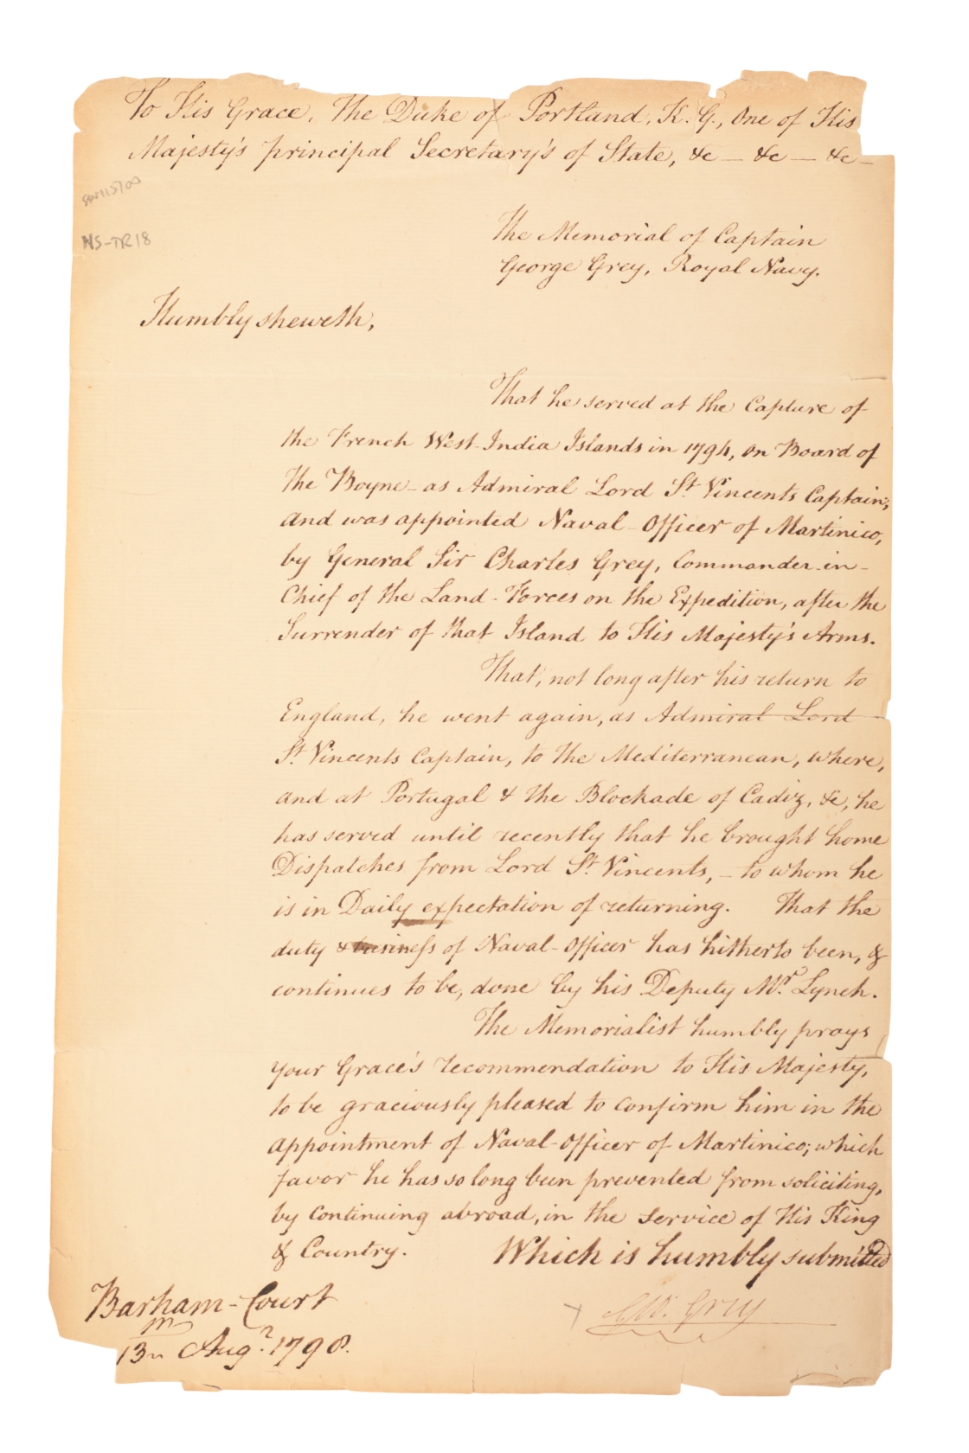 To His Grace, The Duke of Portland, K. G., One of His
Majesty's principal Secretary's of State, &c — &c — &c —
NS-TR18
The Memorial of Captain
George Grey, Royal Navy.
Humbly sheweth,
That he served at the Capture of
the French West-India Islands in 1794, on Board of
the Boyne - as Admiral Lord St Vincents Captain;
and was appointed Naval-Officer of Martinico,
by General Sir Charles Grey, Commander-in-
Chief of the Land-Forces on the Expedition, after the
Surrender of that Island to His Majesty's Arms.
That, not long after his return to
England, he went again, as Admiral Lord
St Vincents Captain, to the Mediterranean, where,
and at Portugal & the Blockade of Cadiz, &c, he
has served until recently that he brought home
Dispatches from Lord St Vincents, - to whom he
is in Daily expectation of returning. That the
duty & business of Naval-Officer has hitherto been, &
continues to be, done by his Deputy Mr Lynch.
The Memorialist humbly prays
your Grace's recommendation to His Majesty,
to be graciously pleased to confirm him in the
appointment of Naval-Officer of Martinico; which
favor he has so long been prevented from soliciting,
by continuing abroad, in the Service of His King
& Country. Which is humbly submitted
Geo. Grey
Barham-Court
13th Augt. 1798.